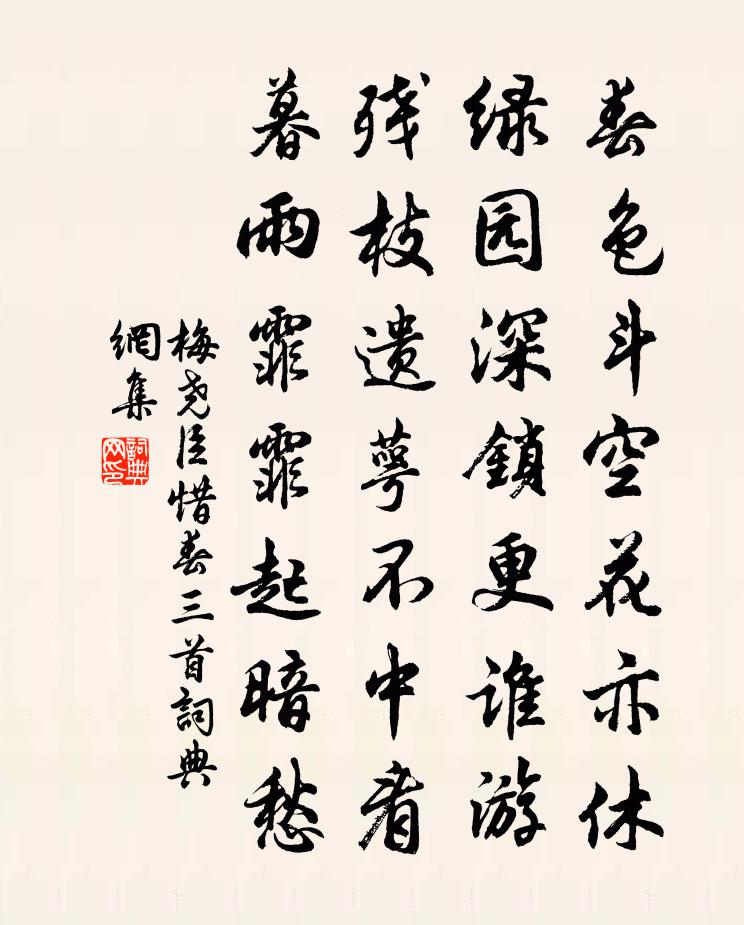 春色斗空花亦休
绿园深鎖更谁游
残枝遗萼不中看
暮雨霏霏起暗愁
梅尧臣惜春三首詞典
網集
詞典
网印